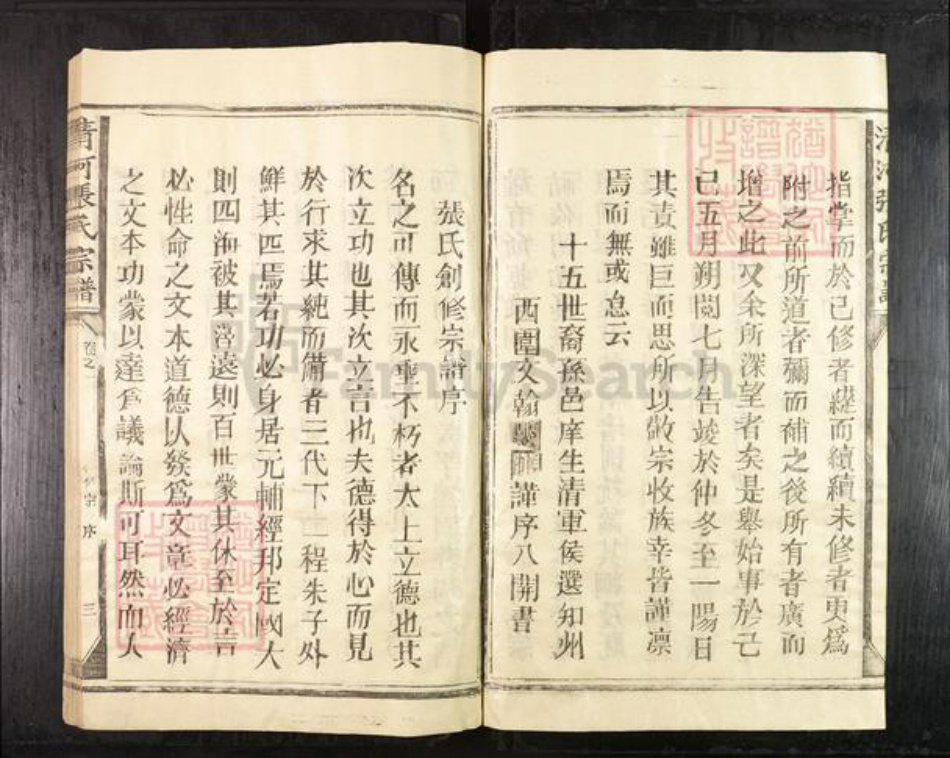 指掌而於已修者纏而續續未修者更為
附之前所道者彌而補之後所有者廣而
增之此又余所深望者矣是舉始事於己
巳五月朔閱七月告竣於仲冬至一陽日
其責雖巨而思所以敬宗收族幸皆謹凛
焉而無或怠云
十五世裔孫邑庠生清軍侯選知州
西園文翰謹序八開書
張氏創修宗譜序
名之可傳而永垂不朽者太上立德也其
次立功也其次立言也夫德得於心而見
於行求其純而備者三代下二程朱子外
鮮其匹焉若功必身居元輔經邦定國大
則四海被其澤遠則百世蒙其休至於言
必性命之文本道德以發爲文章必經濟
之文本功業以達爲議論斯可耳然而人
清河張氏宗譜
卷之一
序
三
清河張氏宗譜
FamilySearch